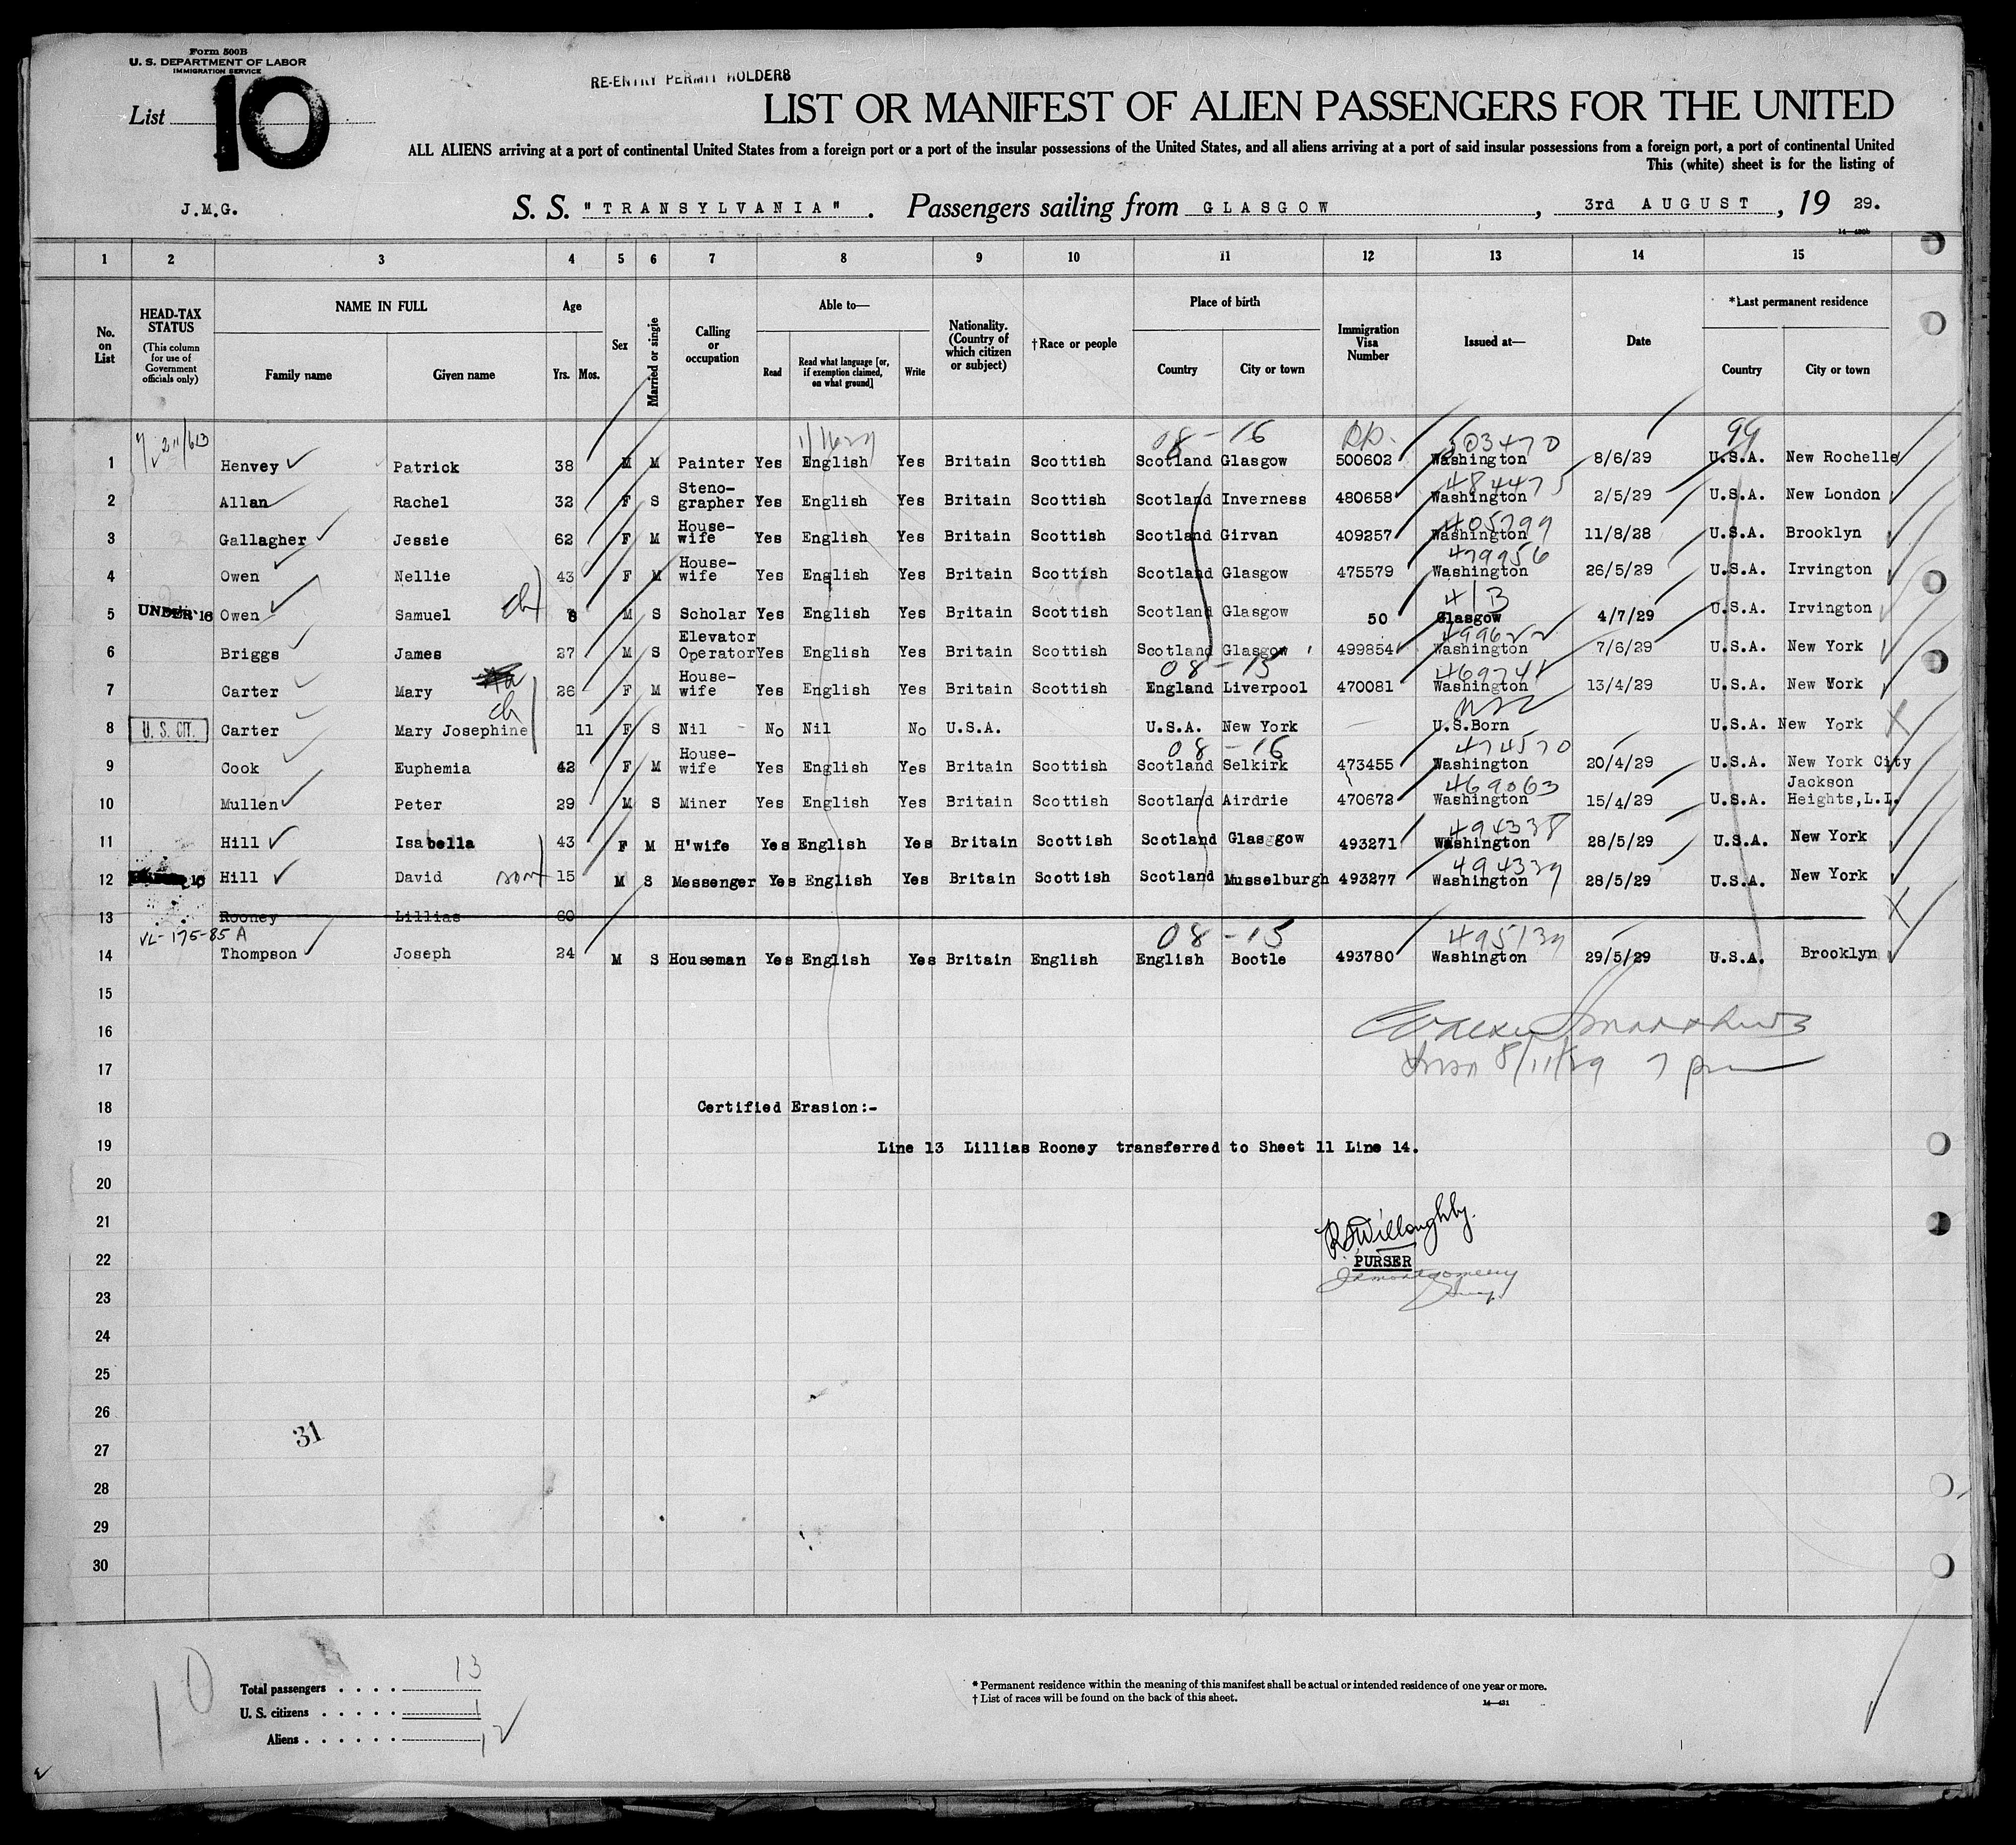 Form 500B
U. S. DEPARTMENT OF LABOR
IMMIGRATION SERVICE
RE-ENTRY PERMIT HOLDERS
List 10
LIST OR MANIFEST OF ALIEN PASSENGERS FOR THE UNITED
ALL ALIENS arriving at a port of continental United States from a foreign port or a port of the insular possessions of the United States, and all aliens arriving at a port of said insular possessions from a foreign port, a port of continental United
This (white) sheet is for the listing of
J.M.G. S. S. "TRANSYLVANIA". Passengers sailing from GLASGOW, 3rd AUGUST, 19 29.
1 2 3 4 5 6 7 8 9 10 11 12 13 14 15
No. on List
HEAD-TAX STATUS (This column for use of Government officials only)
NAME IN FULL Family name Given name
Age Yrs. Mos.
Sex
Married or single
Calling or occupation
Able to— Read Read what language [or, if exemption claimed, on what ground] Write
Nationality. (Country of which citizen or subject)
†Race or people
Place of birth Country City or town
Immigration Visa Number
Issued at—
Date
*Last permanent residence Country City or town
08-16 503470 99
1 Henvey Patrick 38 M M Painter Yes English Yes Britain Scottish Scotland Glasgow 500602 Washington 8/6/29 U.S.A. New Rochelle
484475
2 Allan Rachel 32 F S Steno-grapher Yes English Yes Britain Scottish Scotland Inverness 480658 Washington 2/5/29 U.S.A. New London
405799
3 Gallagher Jessie 62 F M House-wife Yes English Yes Britain Scottish Scotland Girvan 409257 Washington 11/8/28 U.S.A. Brooklyn
479956
4 Owen Nellie 43 F M House-wife Yes English Yes Britain Scottish Scotland Glasgow 475579 Washington 26/5/29 U.S.A. Irvington
413
5 UNDER 16 Owen Samuel ch 8 M S Scholar Yes English Yes Britain Scottish Scotland Glasgow 50 Glasgow 4/7/29 U.S.A. Irvington
499622
6 Briggs James 27 M S Elevator Operator Yes English Yes Britain Scottish Scotland Glasgow 499854 Washington 7/6/29 U.S.A. New York
08-15 469741
7 Carter Mary 26 F M House-wife Yes English Yes Britain Scottish England Liverpool 470081 Washington 13/4/29 U.S.A. New York
8 U. S. CIT. Carter Mary Josephine ch 11 F S Nil - No Nil No U.S.A. U.S.A. New York — U.S.Born U.S.A. New York X
08-16 474570
9 Cook Euphemia 42 F M House-wife Yes English Yes Britain Scottish Scotland Selkirk 473455 Washington 20/4/29 U.S.A. New York City
469063
10 Mullen Peter 29 M S Miner Yes English Yes Britain Scottish Scotland Airdrie 470672 Washington 15/4/29 U.S.A. Jackson Heights,L.I.
494338
11 Hill Isabella 43 F M H'wife Yes English Yes Britain Scottish Scotland Glasggow 493271 Washington 28/5/29 U.S.A. New York
494339
12 Hill David son 15 M S Messenger Yes English Yes Britain Scottish Scotland Musselburgh 493277 Washington 28/5/29 U.S.A. New York
13 Rooney Lillias 60 X
VL-175-85 A 08-15 495139
14 Thompson Joseph 24 M S Houseman Yes English Yes Britain English English Bootle 493780 Washington 29/5/29 U.S.A. Brooklyn
15
16
17 8/11/29 7 pm
18 Certified Erasion:-
19 Line 13 Lillias Rooney transferred to Sheet 11 Line 14.
20
21 Willoughby.
22 PURSER
23
24
25
26
27 31
28
29
30
10
Total passengers . . . . 13
U. S. citizens . . . . . 1
Aliens . . . . . . 12
* Permanent residence within the meaning of this manifest shall be actual or intended residence of one year or more.
† List of races will be found on the back of this sheet.
14—431